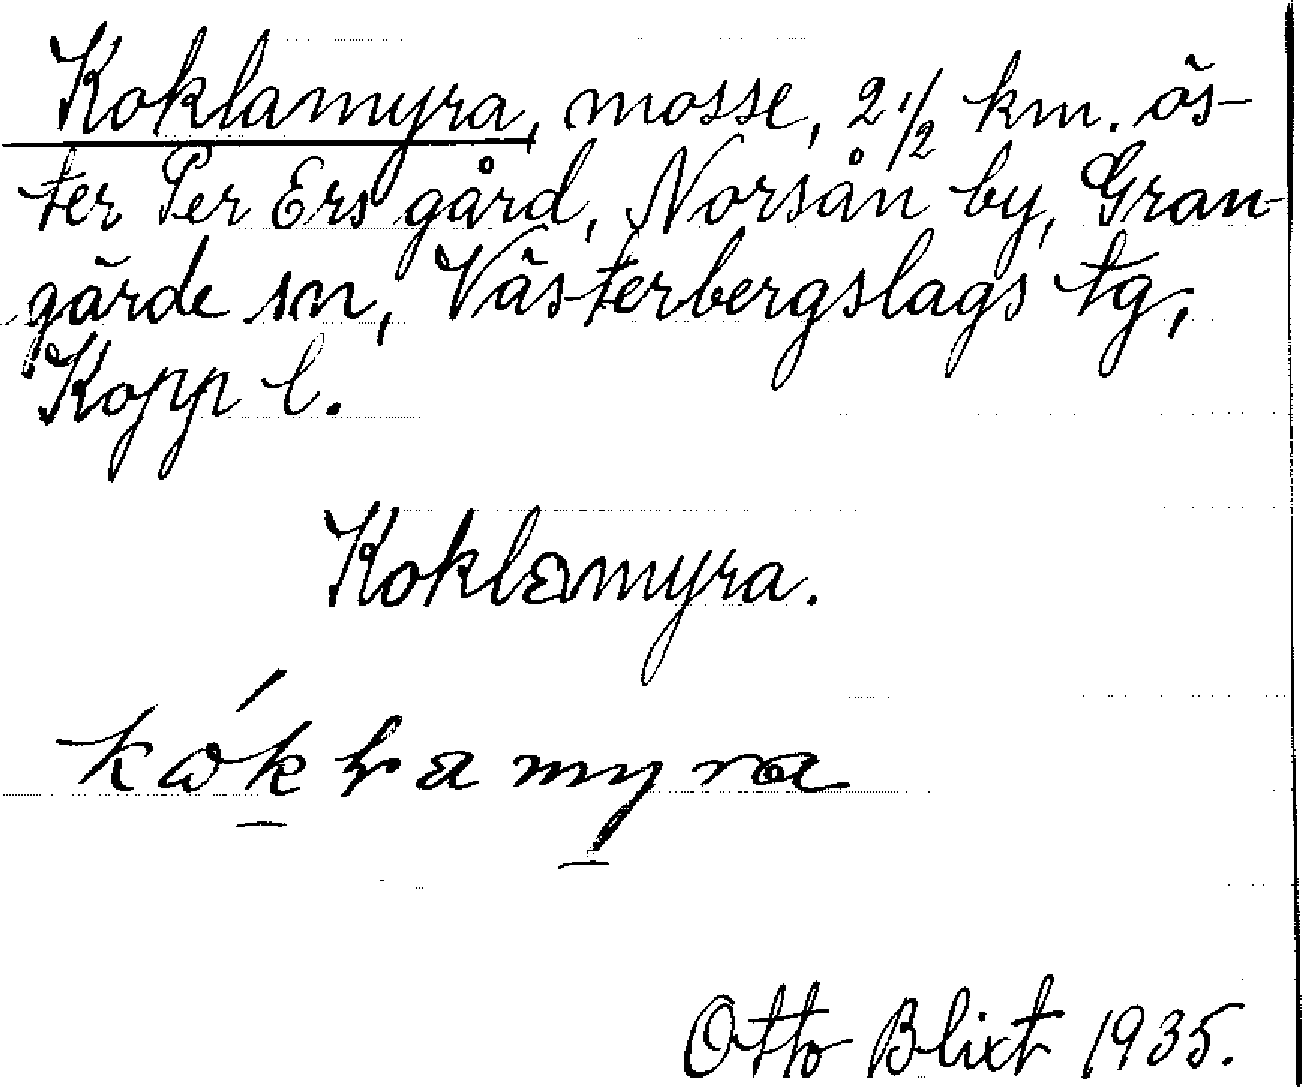 Koklamyra, mosse, 2 1/2 km. ös-
ter Per Ers gård, Norsån by, Gran-
gärde sn, Västerbergslags tg,
Kopp l.
Koklamyra.
Otto Blixt 1935.